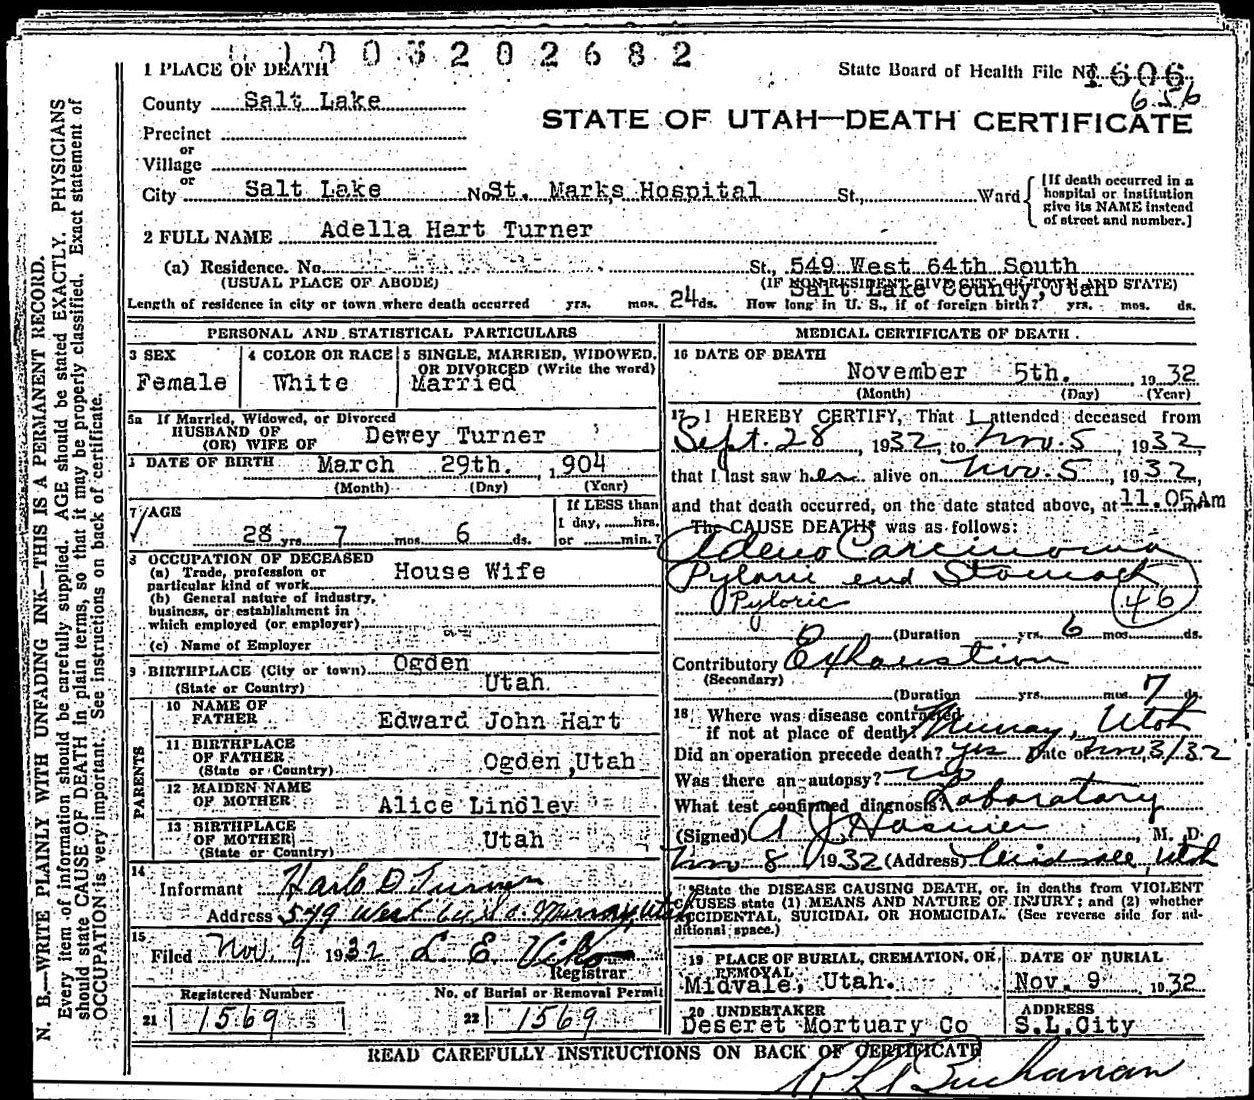 01003202682
1 PLACE OF DEATH
State Board of Health File No. 1606
656
County Salt Lake
STATE OF UTAH—DEATH CERTIFICATE
Precinct
or
Village
or
City Salt Lake No. St. Marks Hospital St., Ward
[If death occurred in a hospital or institution give its NAME instead of street and number.]
2 FULL NAME Adella Hart Turner
(a) Residence. No. St., 549 West 64th South
(USUAL PLACE OF ABODE) (IF NON-RESIDENT GIVE CITY OR TOWN AND STATE)
Salt Lake County, Utah
Length of residence in city or town where death occurred yrs. mos. 24 ds. How long in U. S., if of foreign birth? yrs. mos. ds.
PERSONAL AND STATISTICAL PARTICULARS
3 SEX
Female
4 COLOR OR RACE
White
5 SINGLE, MARRIED, WIDOWED, OR DIVORCED (Write the word)
Married
5a If Married, Widowed, or Divorced
HUSBAND OF
(OR) WIFE OF Dewey Turner
DATE OF BIRTH March 29th. 1904
(Month) (Day) (Year)
7 AGE
28 yrs. 7 mos. 6 ds.
If LESS than
1 day, hrs.
or min.?
8 OCCUPATION OF DECEASED
(a) Trade, profession or
particular kind of work House Wife
(b) General nature of industry,
business, or establishment in
which employed (or employer)
(c) Name of Employer
9 BIRTHPLACE (City or town) Ogden
(State or Country) Utah
PARENTS
10 NAME OF
FATHER Edward John Hart
11 BIRTHPLACE
OF FATHER
(State or Country) Ogden, Utah
12 MAIDEN NAME
OF MOTHER Alice Lindley
13 BIRTHPLACE
OF MOTHER
(State or Country) Utah
14
Informant Turner
Address 549 West 64 So. Murray, Utah
15
Filed Nov. 9 1932 L. E. Viko
Registrar
Registered Number
21 1569
No. of Burial or Removal Permit
22 1569
MEDICAL CERTIFICATE OF DEATH
16 DATE OF DEATH
November 5th. 1932
(Month) (Day) (Year)
17 I HEREBY CERTIFY, That I attended deceased from
Sept. 28, 1932, to Nov. 5, 1932,
that I last saw her alive on Nov. 5, 1932,
and that death occurred, on the date stated above, at 11.05 Am
The CAUSE DEATH* was as follows:
Adeno Carcinoma
Pyloric end Stomach
Pyloric (46)
(Duration yrs. 6 mos. ds.
Contributory Exhaustion
(Secondary)
(Duration yrs. mos. 7 ds.
18 Where was disease contracted
if not at place of death? Murray, Utah
Did an operation precede death? yes Date of Nov 3/32
Was there an autopsy? no
What test confirmed diagnosis? Laboratory
(Signed) A J Hosmer, M. D.
Nov 8 1932 (Address) Midvale, Utah
*State the DISEASE CAUSING DEATH, or, in deaths from VIOLENT
CAUSES state (1) MEANS AND NATURE OF INJURY; and (2) whether
ACCIDENTAL, SUICIDAL OR HOMICIDAL. (See reverse side for ad-
ditional space.)
19 PLACE OF BURIAL, CREMATION, OR
REMOVAL
Midvale, Utah.
DATE OF BURIAL
Nov. 9 1932
20 UNDERTAKER
Deseret Mortuary Co
ADDRESS
S.L.City
READ CAREFULLY INSTRUCTIONS ON BACK OF CERTIFICATE
Buchanan
N. B.—WRITE PLAINLY WITH UNFADING INK—THIS IS A PERMANENT RECORD.
Every item of information should be carefully supplied. AGE should be stated EXACTLY. PHYSICIANS
should state CAUSE OF DEATH in plain terms, so that it may be properly classified. Exact statement of
OCCUPATION is very important. See instructions on back of certificate.